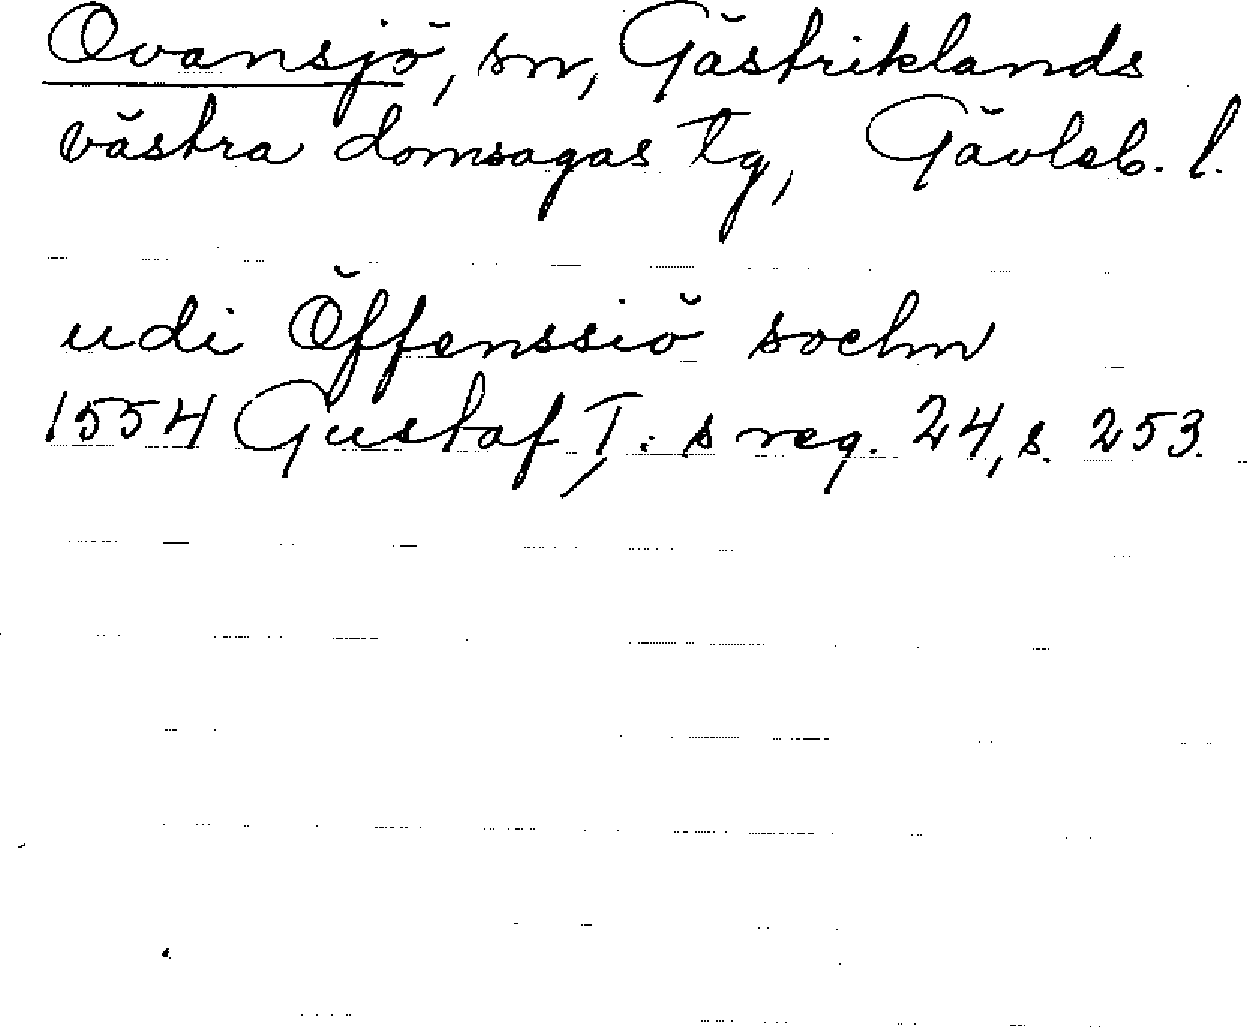 Ovansjö, sn, Gästriklands
västra domsagas tg, Gävleb. l.
udi Öffenssiö sochn
1554 Gustaf I:s reg. 24, s. 253.